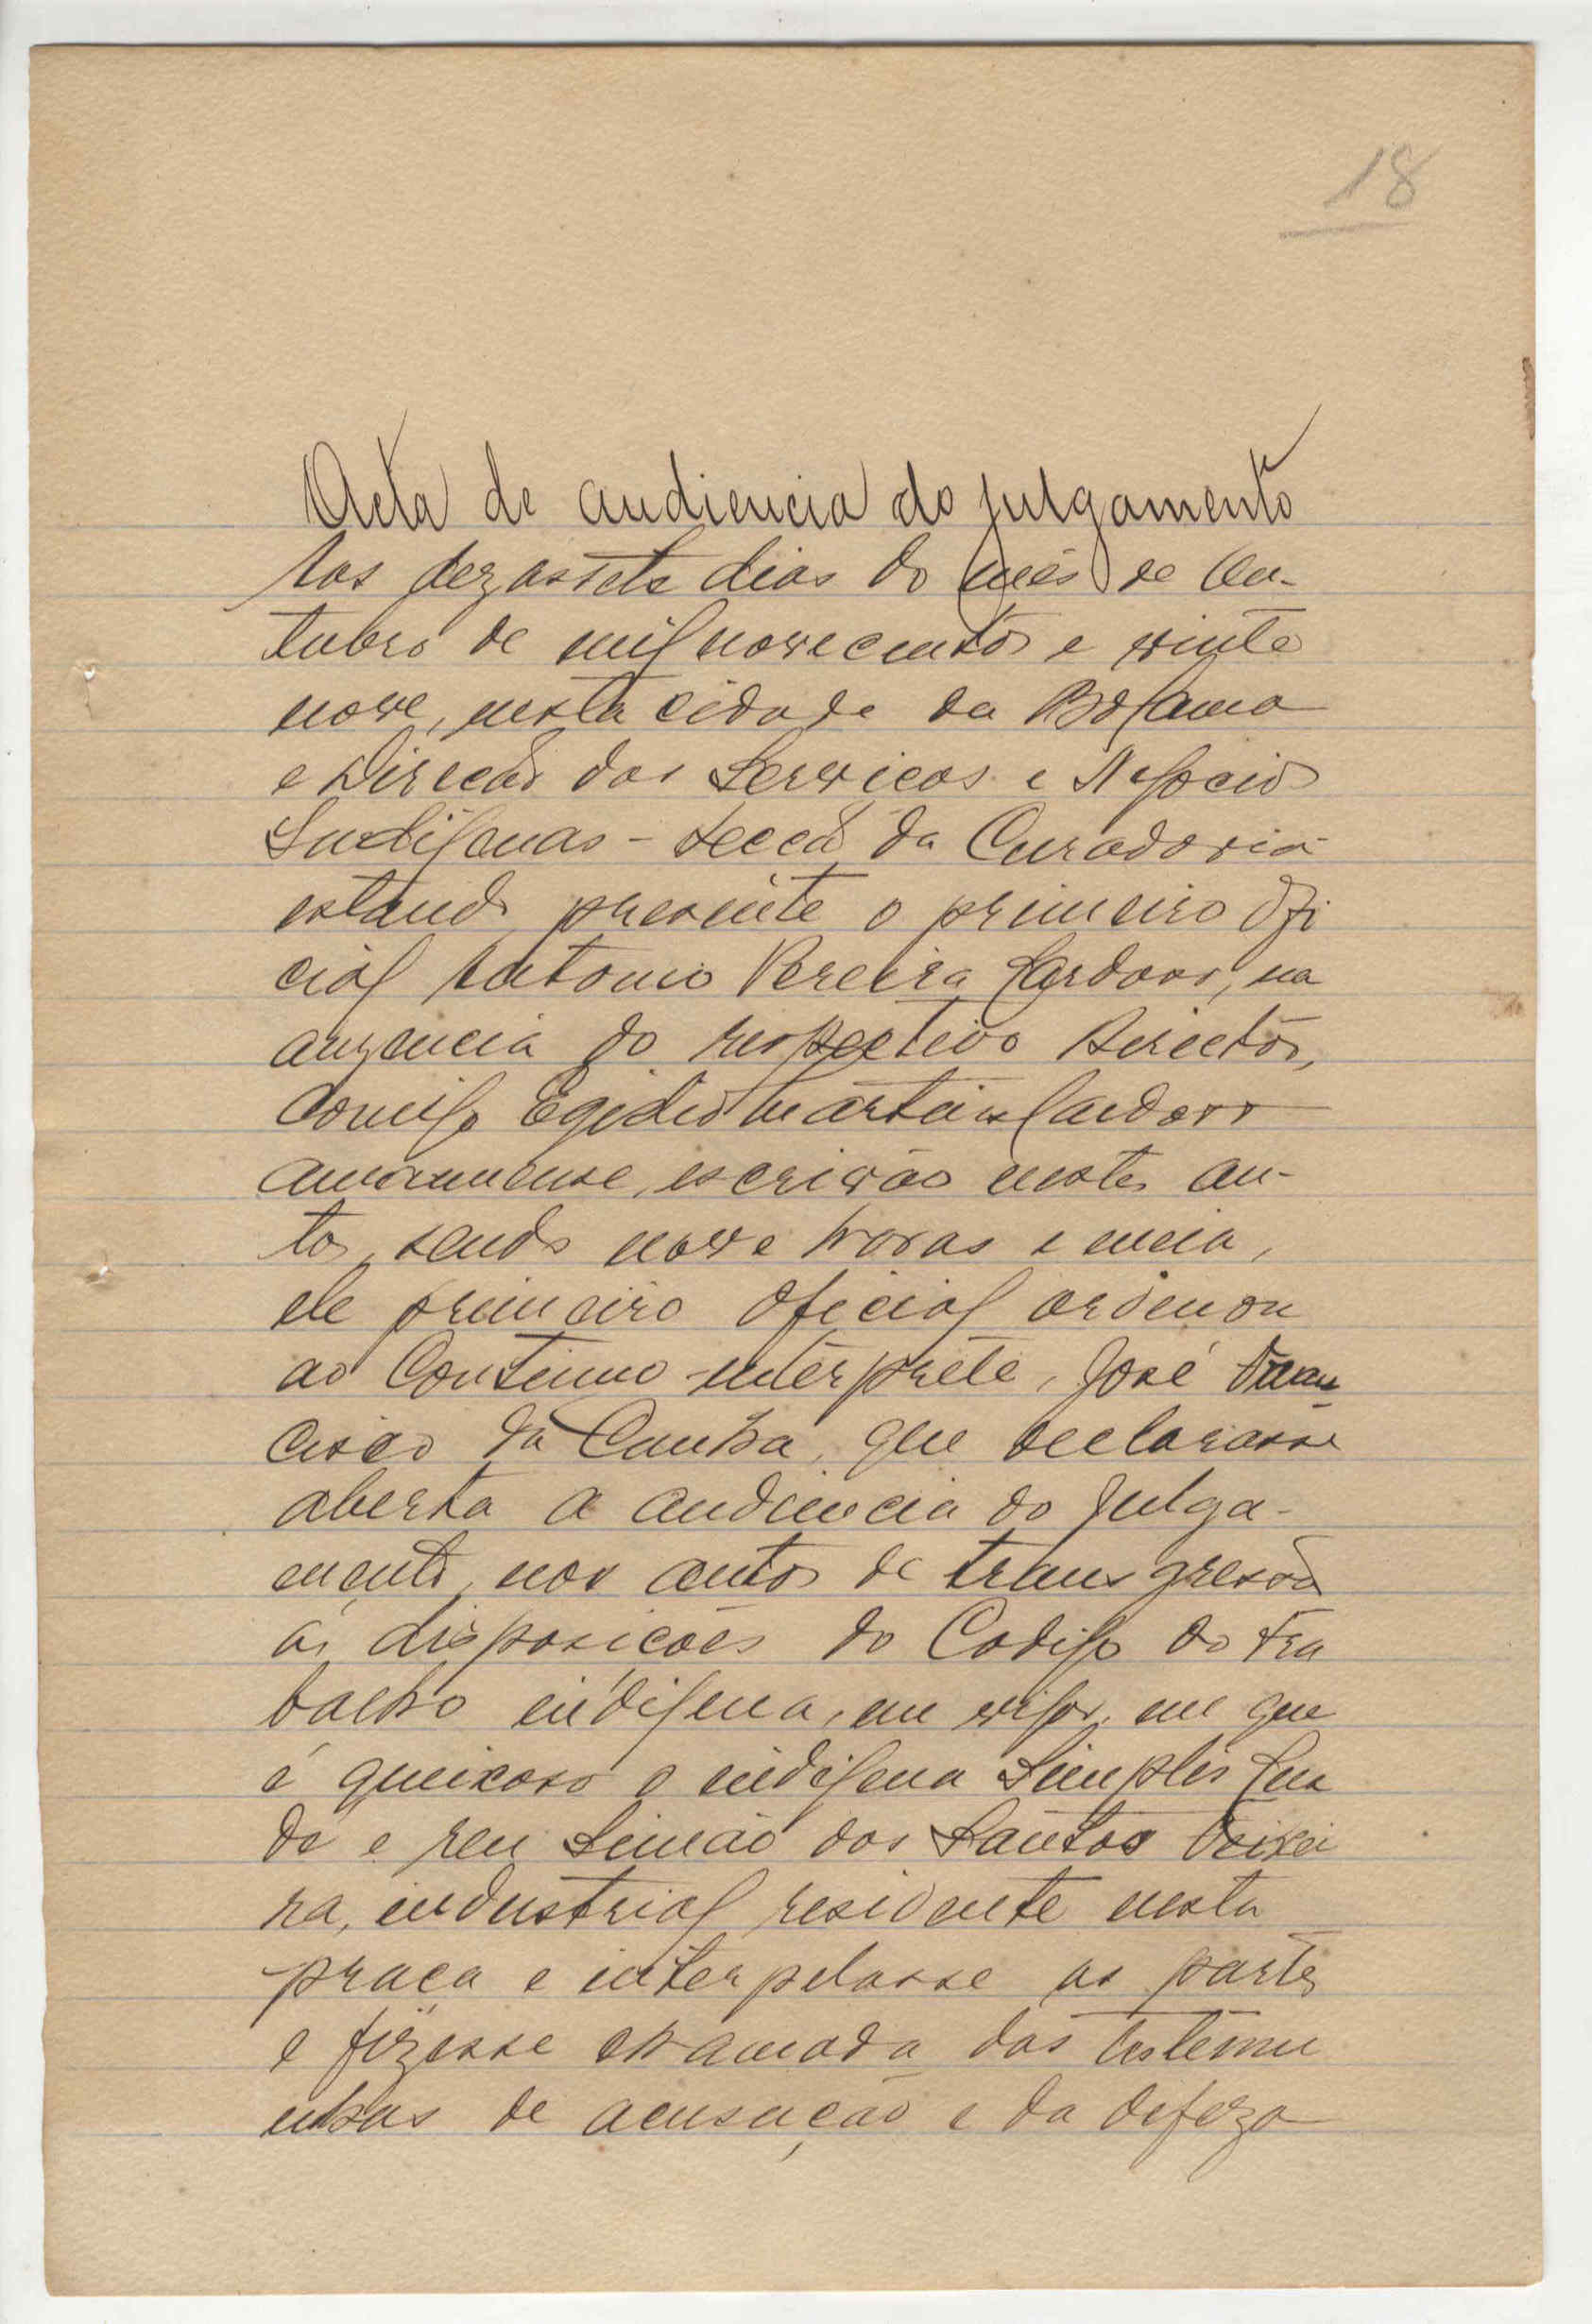 18
Acta de audiencia do julgamento
Aos dezassete dias do mês de Ou-
tubro de mil novecentos e vinte
nove, nesta cidade de Bolama
e Direcão dos Serviços e Negocios
Indigenas - Secção da Curadoria
estando presente o primeiro ofi
cial Antonio Pereira Cardoso, na
auzencia do respectivo Director,
comigo Egidio Martins Cardoso
amanuense, escrivão nestes au-
tos, sendo nove horas e meia,
ele primeiro oficial ordenou
ao Continuo-interprete, José Fran
cisco da Cunha, que declarasse
aberta a audiencia do julga-
mento, nos autos de transgressão
ás disposicões do Codigo do Tra
balho indigena, em vigor, em que
é queixoso o indigena Simplis
e reu Simão dos Santos Teixei
ra, industrial residente nesta
praça e interpelasse as partes
e fizesse chamada das testemu
nhas de acusação e da defeza